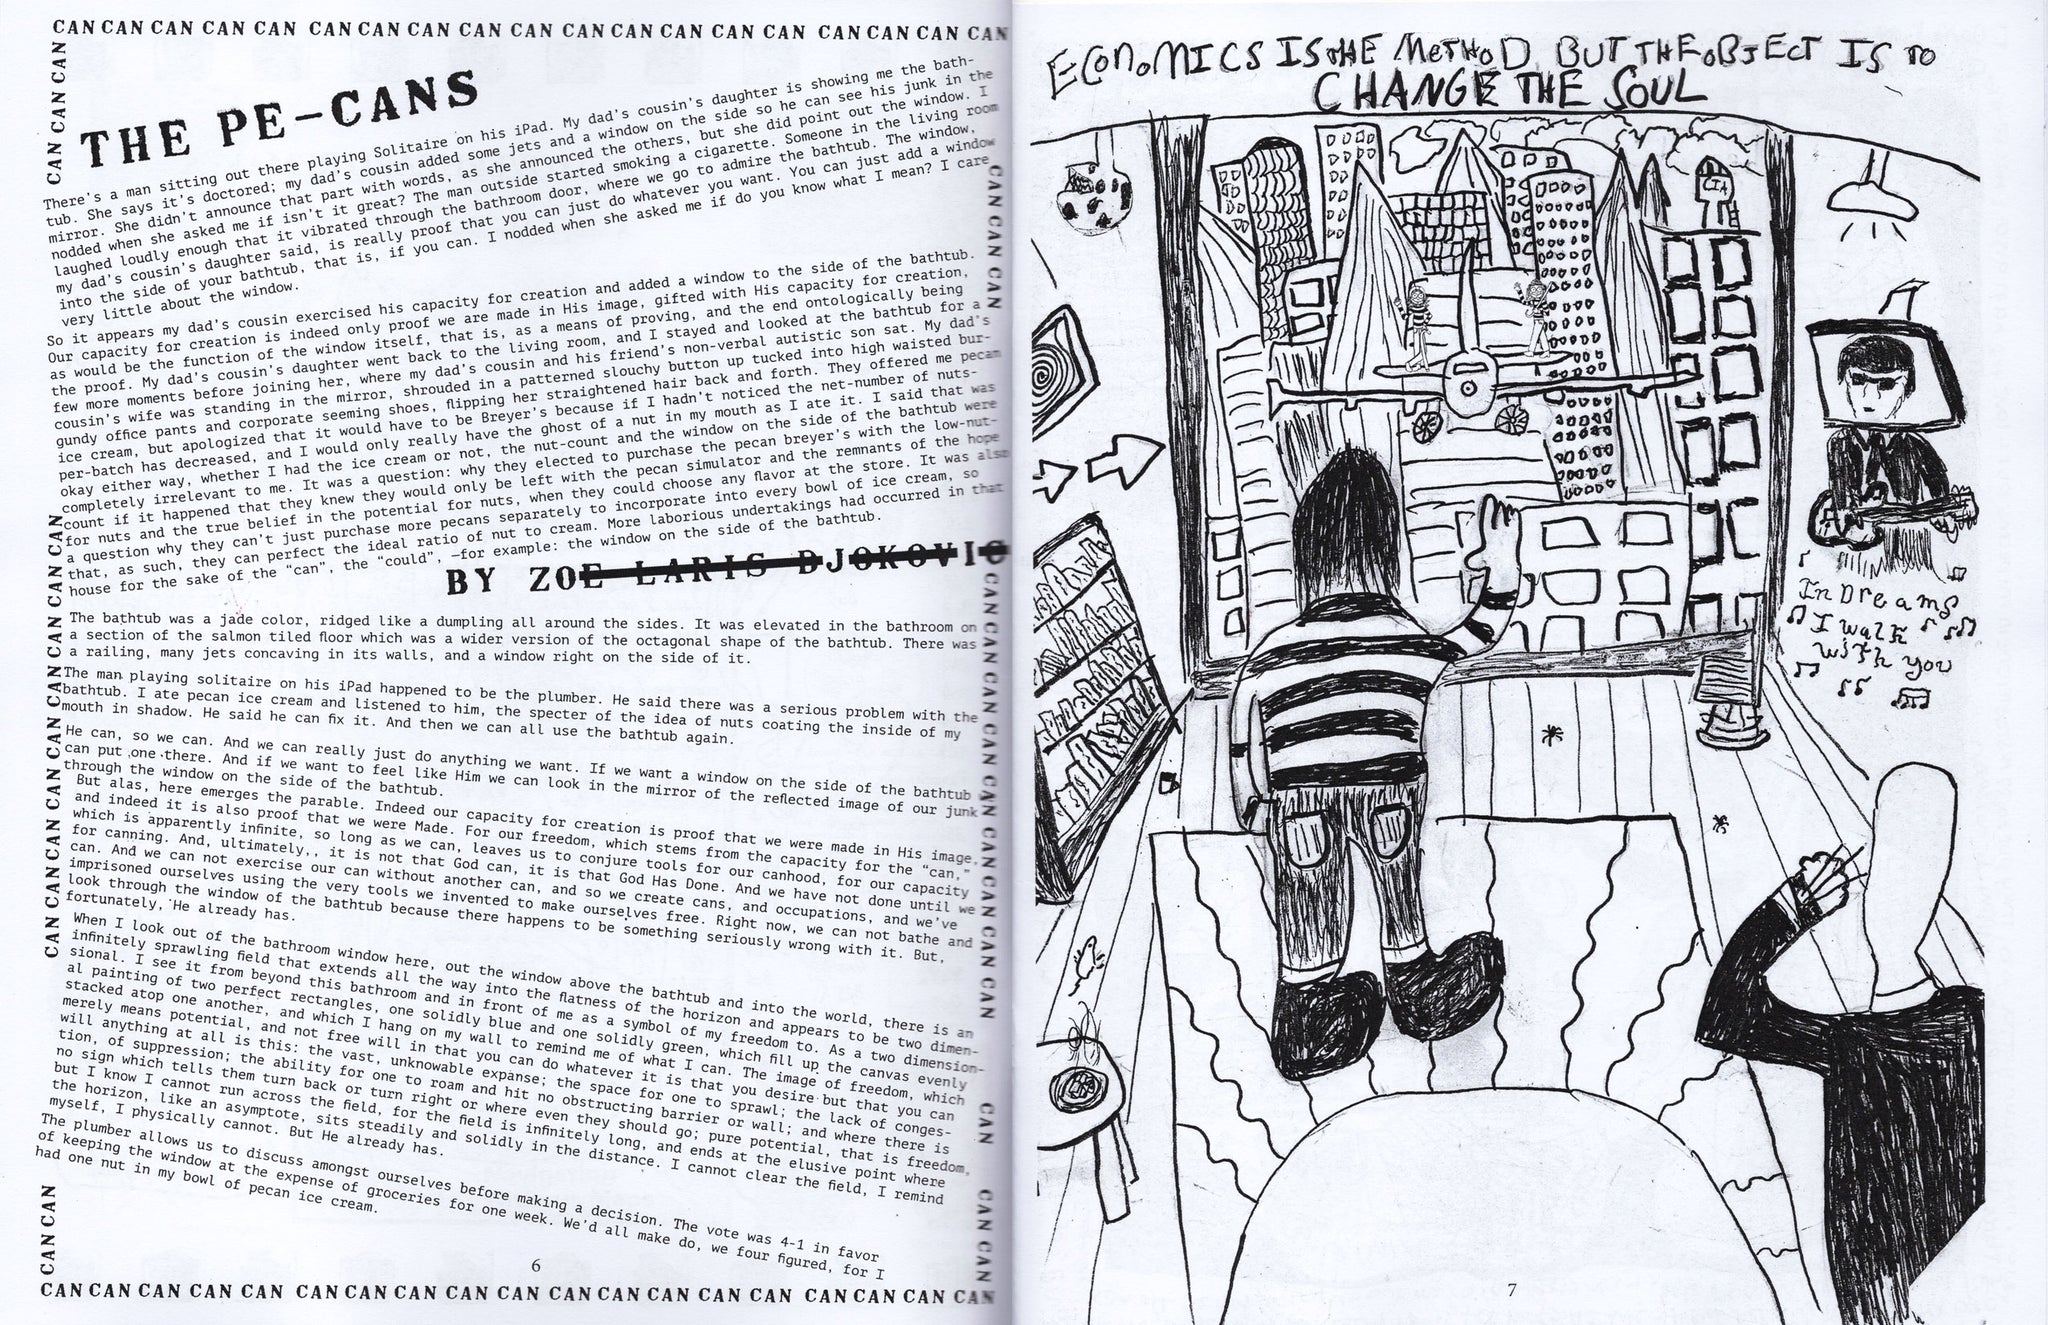 CAN CAN CAN CAN CAN CAN CAN CAN CAN CAN CAN CAN CAN CAN CAN CAN CAN CAN CAN
CAN CAN CAN
THE PE-CANS
There's a man sitting out there playing Solitaire on his iPad. My dad's cousin's daughter is showing me the bath-
tub. She says it's doctored; my dad's cousin added some jets and a window on the side so he can see his junk in the
mirror. She didn't announce that part with words, as she announced the others, but she did point out the window. I
nodded when she asked me if isn't it great? The man outside started smoking a cigarette. Someone in the living room
laughed loudly enough that it vibrated through the bathroom door, where we go to admire the bathtub. The window,
my dad's cousin's daughter said, is really proof that you can just do whatever you want. You can just add a window
into the side of your bathtub, that is, if you can. I nodded when she asked me if do you know what I mean? I care
very little about the window.
CAN CAN CAN
So it appears my dad's cousin exercised his capacity for creation and added a window to the side of the bathtub.
Our capacity for creation is indeed only proof we are made in His image, gifted with His capacity for creation,
as would be the function of the window itself, that is, as a means of proving, and the end ontologically being
the proof. My dad's cousin's daughter went back to the living room, and I stayed and looked at the bathtub for a
few more moments before joining her, where my dad's cousin and his friend's non-verbal autistic son sat. My dad's
cousin's wife was standing in the mirror, shrouded in a patterned slouchy button up tucked into high waisted bur-
gundy office pants and corporate seeming shoes, flipping her straightened hair back and forth. They offered me pecan
ice cream, but apologized that it would have to be Breyer's because if I hadn't noticed the net-number of nuts-
per-batch has decreased, and I would only really have the ghost of a nut in my mouth as I ate it. I said that was
okay either way, whether I had the ice cream or not, the nut-count and the window on the side of the bathtub were
completely irrelevant to me. It was a question: why they elected to purchase the pecan breyer's with the low-nut-
count if it happened that they knew they would only be left with the pecan simulator and the remnants of the hope
for nuts and the true belief in the potential for nuts, when they could choose any flavor at the store. It was also
a question why they can't just purchase more pecans separately to incorporate into every bowl of ice cream, so
that, as such, they can perfect the ideal ratio of nut to cream. More laborious undertakings had occurred in that
house for the sake of the "can", the "could", —for example: the window on the side of the bathtub.
BY ZOE LARIS DJOKOVIC
The bathtub was a jade color, ridged like a dumpling all around the sides. It was elevated in the bathroom on
a section of the salmon tiled floor which was a wider version of the octagonal shape of the bathtub. There was
a railing, many jets concaving in its walls, and a window right on the side of it.
The man playing solitaire on his iPad happened to be the plumber. He said there was a serious problem with the
bathtub. I ate pecan ice cream and listened to him, the specter of the idea of nuts coating the inside of my
mouth in shadow. He said he can fix it. And then we can all use the bathtub again.
He can, so we can. And we can really just do anything we want. If we want a window on the side of the bathtub
can put one there. And if we want to feel like Him we can look in the mirror of the reflected image of our junk
through the window on the side of the bathtub.
But alas, here emerges the parable. Indeed our capacity for creation is proof that we were made in His image,
and indeed it is also proof that we were Made. For our freedom, which stems from the capacity for the "can,"
which is apparently infinite, so long as we can, leaves us to conjure tools for our canhood, for our capacity
for canning. And, ultimately,, it is not that God can, it is that God Has Done. And we have not done until we
can. And we can not exercise our can without another can, and so we create cans, and occupations, and we've
imprisoned ourselves using the very tools we invented to make ourselves free. Right now, we can not bathe and
look through the window of the bathtub because there happens to be something seriously wrong with it. But,
fortunately, He already has.
When I look out of the bathroom window here, out the window above the bathtub and into the world, there is an
infinitely sprawling field that extends all the way into the flatness of the horizon and appears to be two dimen-
sional. I see it from beyond this bathroom and in front of me as a symbol of my freedom to. As a two dimension-
al painting of two perfect rectangles, one solidly blue and one solidly green, which fill up the canvas evenly
stacked atop one another, and which I hang on my wall to remind me of what I can. The image of freedom, which
merely means potential, and not free will in that you can do whatever it is that you desire but that you can
will anything at all is this: the vast, unknowable expanse; the space for one to sprawl; the lack of conges-
tion, of suppression; the ability for one to roam and hit no obstructing barrier or wall; and where there is
no sign which tells them turn back or turn right or where even they should go; pure potential, that is freedom,
but I know I cannot run across the field, for the field is infinitely long, and ends at the elusive point where
the horizon, like an asymptote, sits steadily and solidly in the distance. I cannot clear the field, I remind
myself, I physically cannot. But He already has.
The plumber allows us to discuss amongst ourselves before making a decision. The vote was 4-1 in favor
of keeping the window at the expense of groceries for one week. We'd all make do, we four figured, for I
had one nut in my bowl of pecan ice cream.
CAN CAN CAN CAN CAN CAN CAN CAN CAN
CAN CAN CAN CAN CAN CAN CAN CAN CAN
CAN
CAN CAN
CAN CAN
6
CAN CAN CAN CAN CAN CAN CAN CAN CAN CAN CAN CAN CAN CAN CAN CAN CAN CAN CAN
ECONOMICS IS THE METHOD BUT THE OBJECT IS TO
CHANGE THE SOUL
CIA
In Dreams
I walk
with you
7